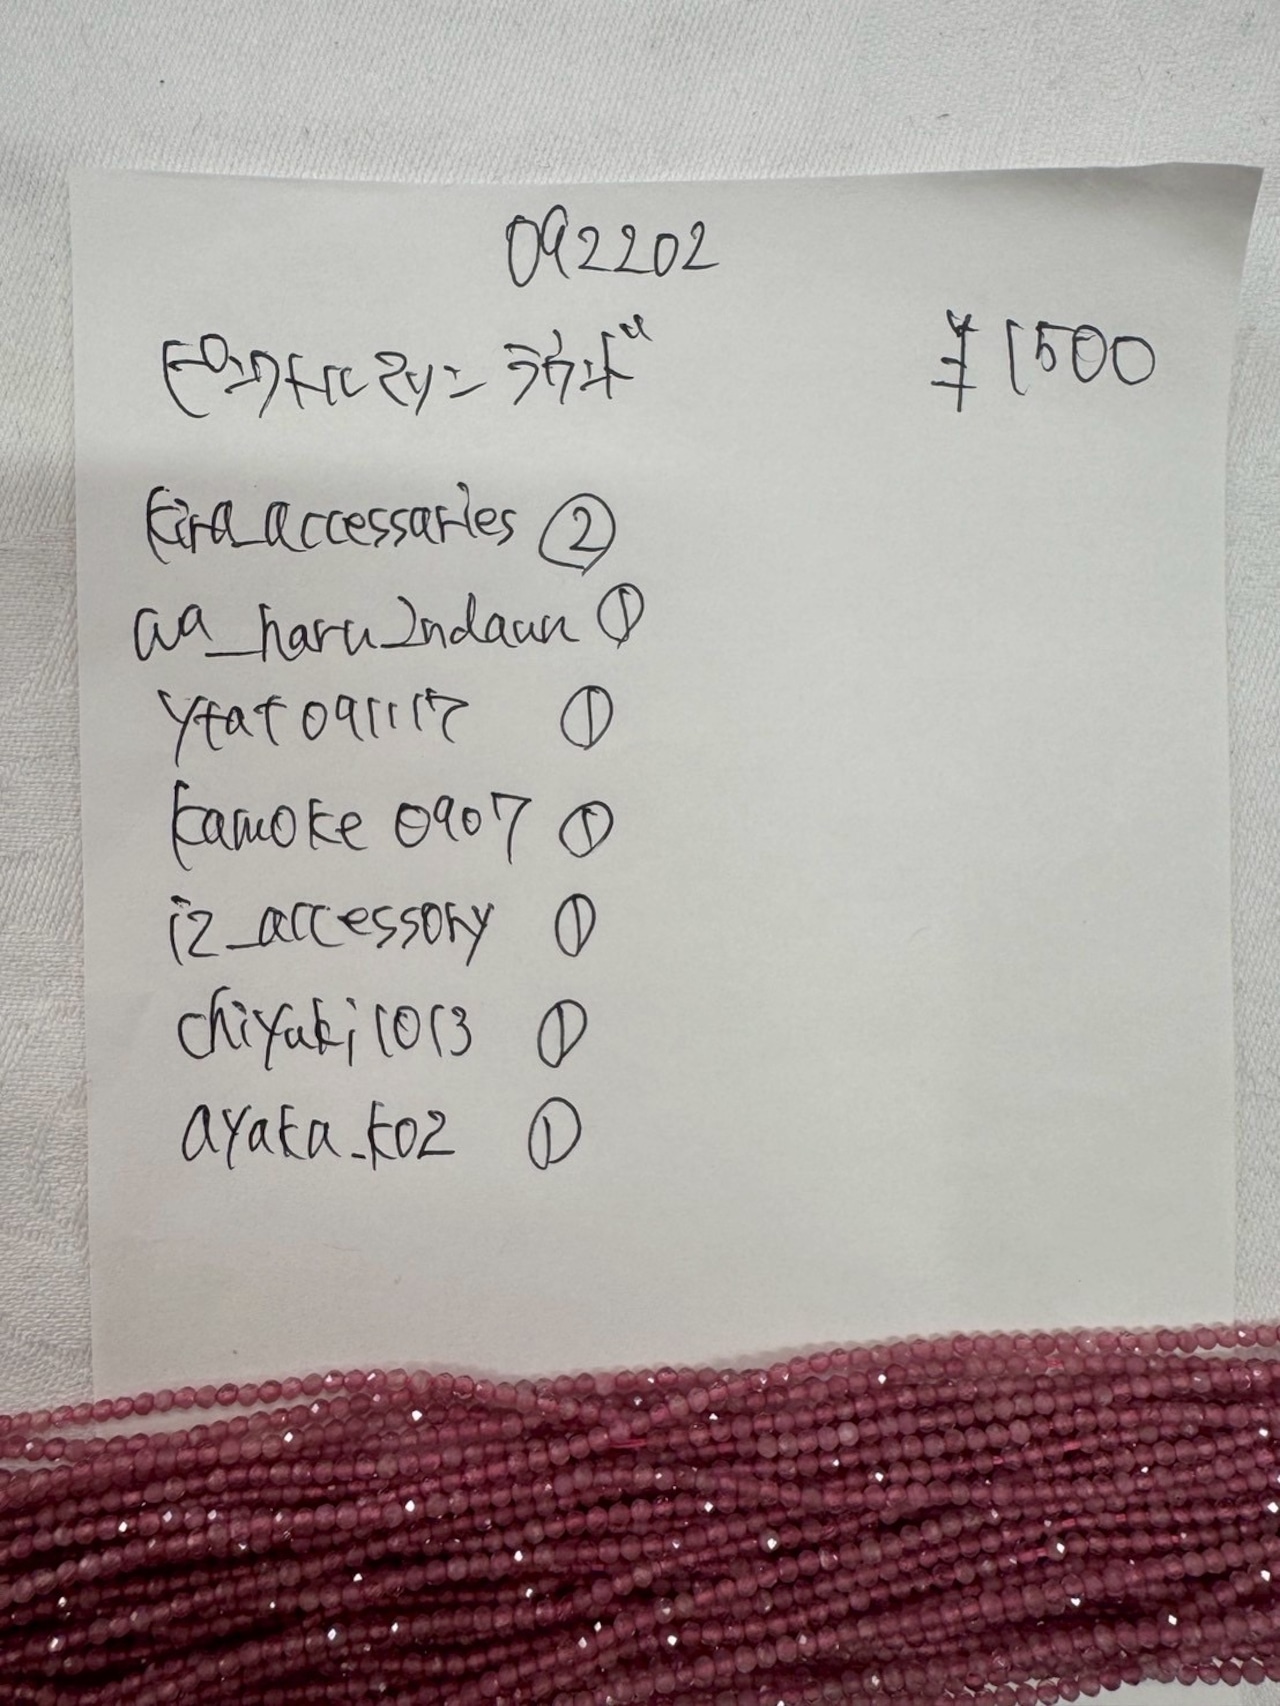 092202
ピンクトルマリン ラウンド ¥1500
kira_accessaries ②
aa_haru_2ndaun ①
ytat091117 ①
kamoke0907 ①
iz_accessory ①
chiyuki1013 ①
ayaka_k02 ①